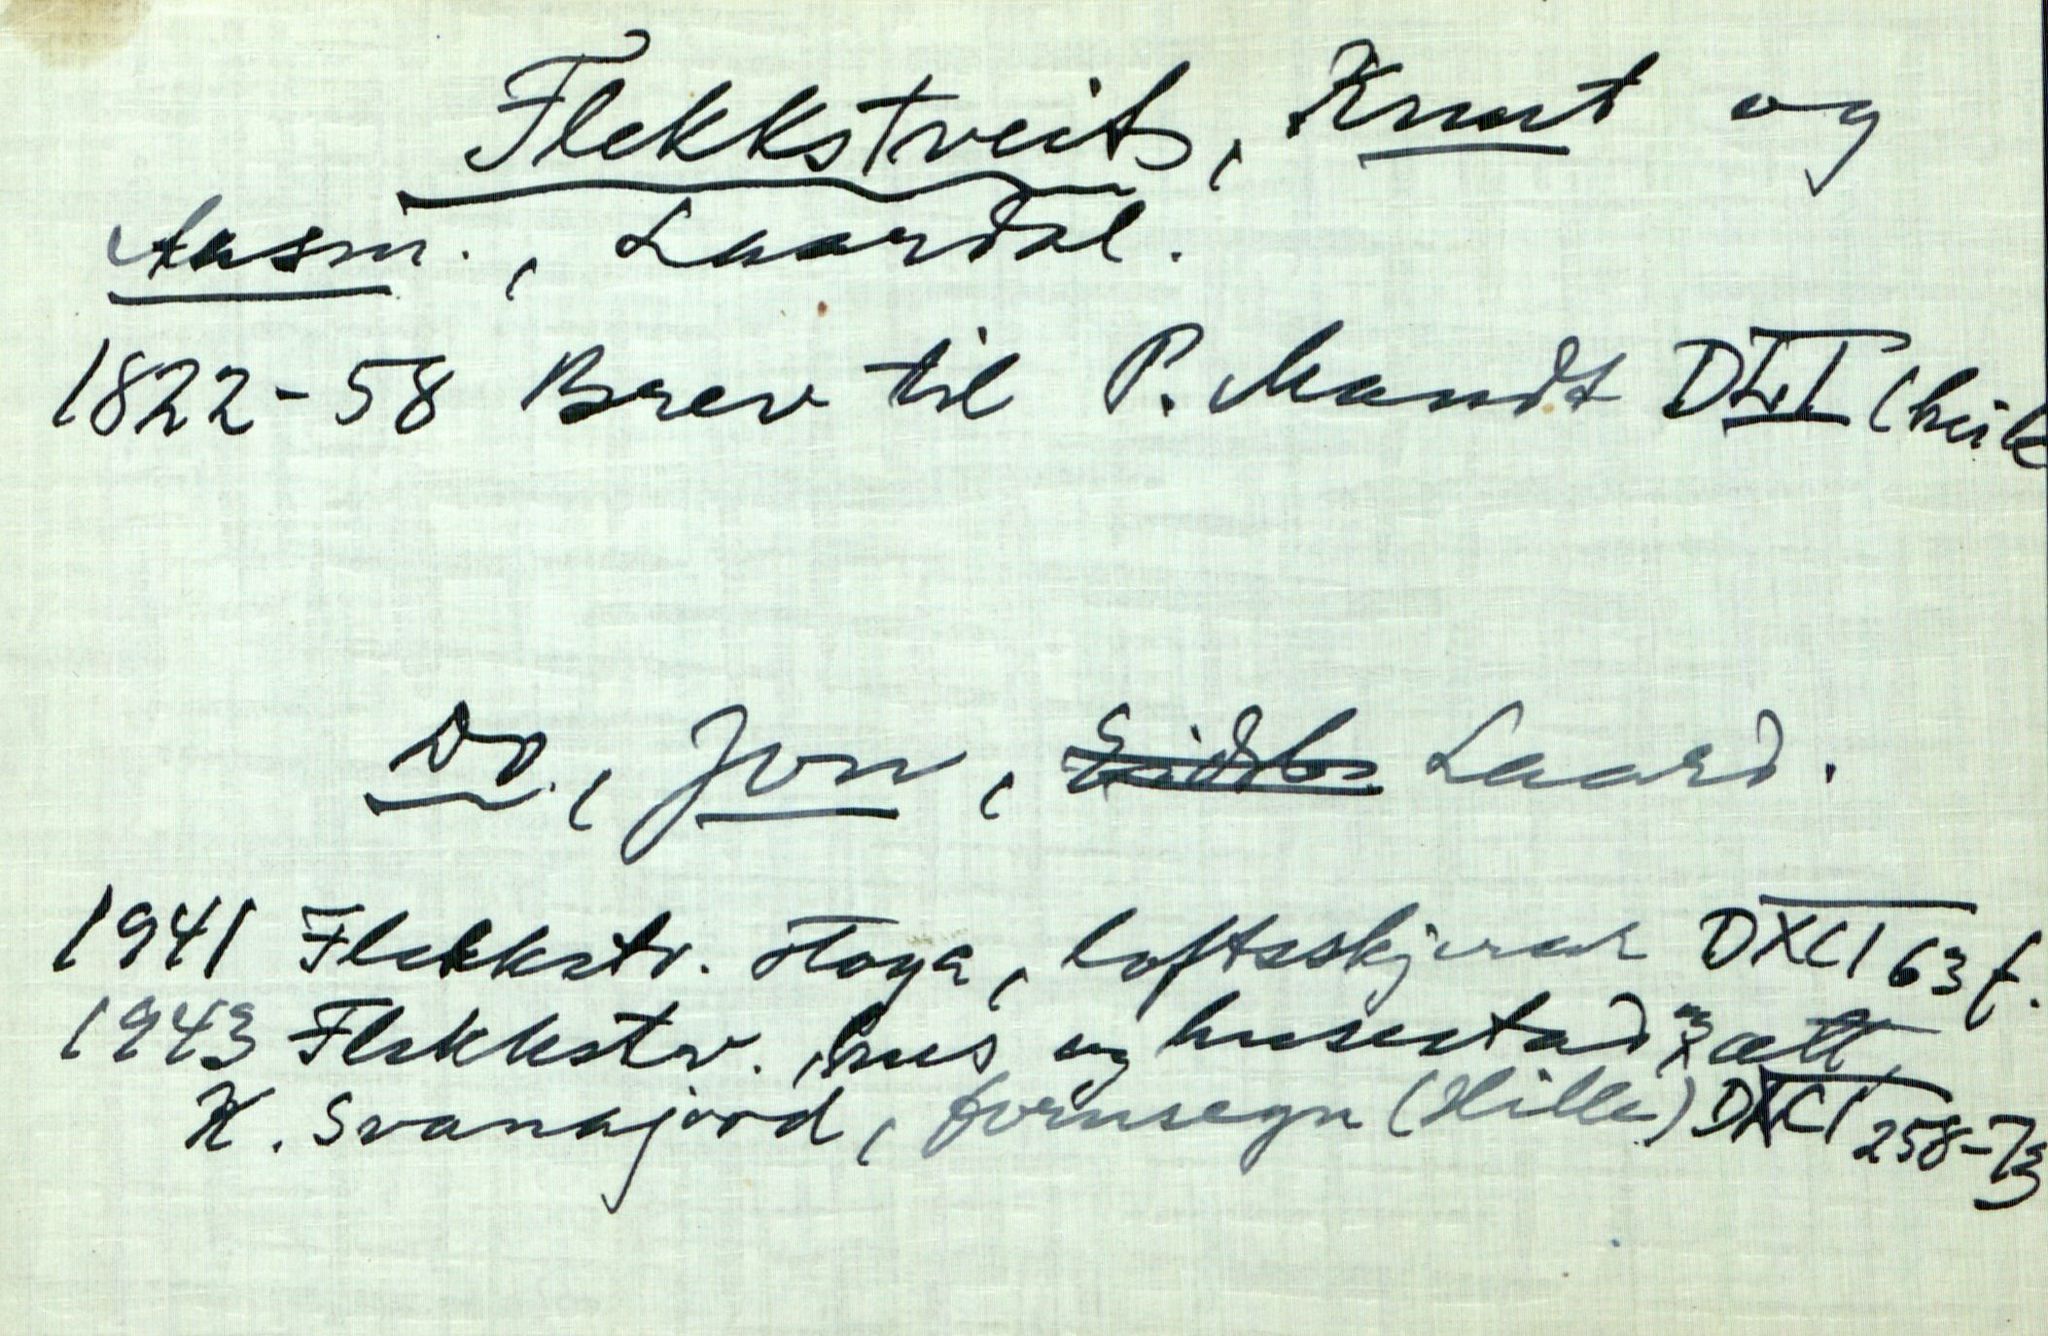 Flekkstveit, Knut og
Aasm., Laardal.
1822-58 Brev til P. Mandt DLI (heile
Do., Jon, Laard.
1941 Flekkstv. stoga, loftsskjerar DXCI 63 f.
1943 Flekkstv. hus og husestad og ætt,
K. Svanajord, fornsegn (Hille) DXCI 258-73